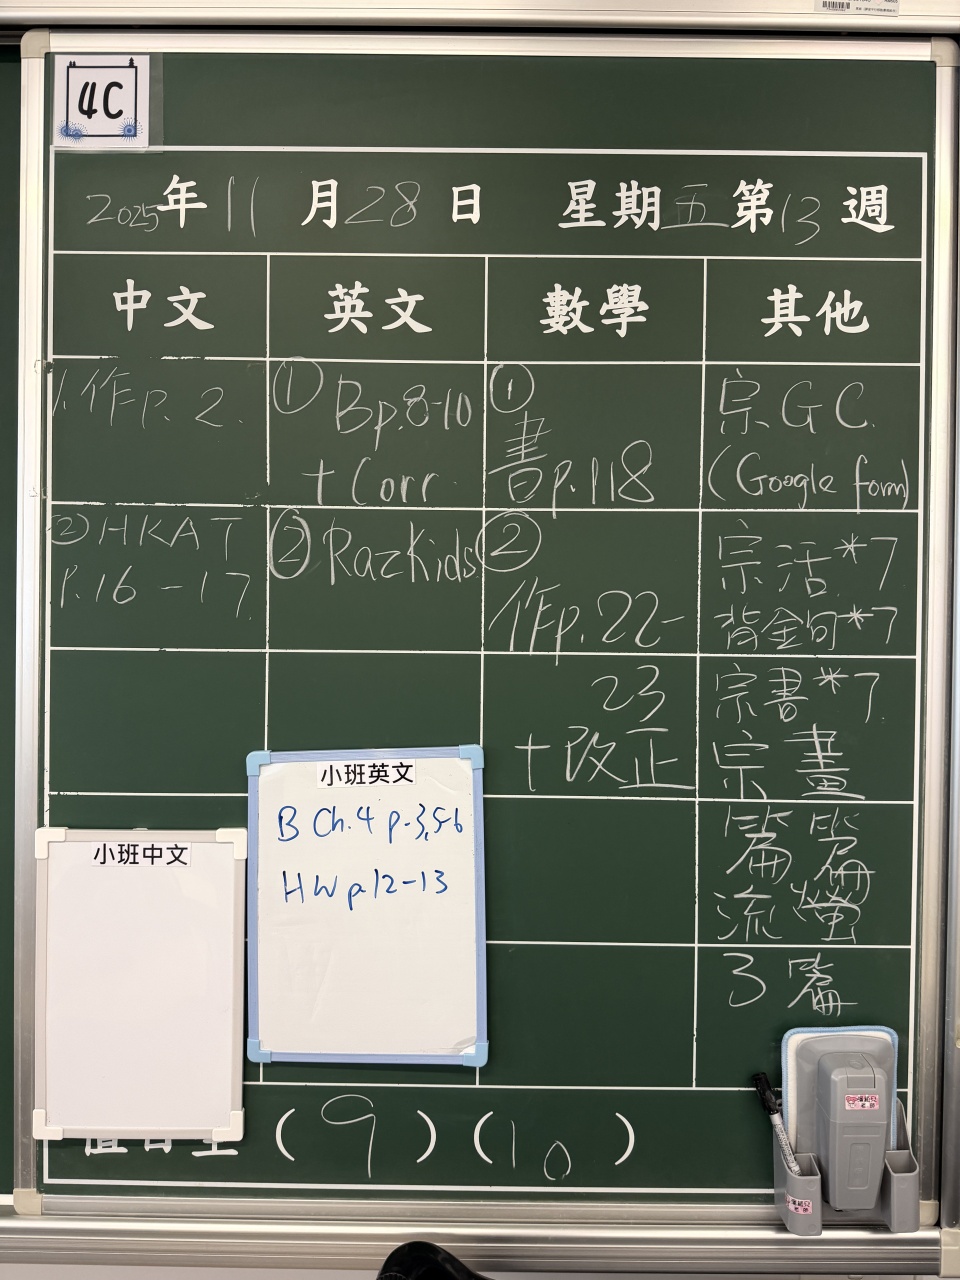 4C
2025年11月28日 星期五第13週
中文
1.作p.2.
②HKAT
P.16-17.
英文
①Bp.8-10
+Corr.
②RazKids
數學
①
書p.118
②
作p.22-
23
+改正
其他
宗GC.
(Google form)
宗活*7
背金句*7
宗書*7.
宗畫
篇篇
流螢
3篇
小班中文
小班英文
B Ch.4 p.3,5-6
HW p.12-13
值日生(9)(10)